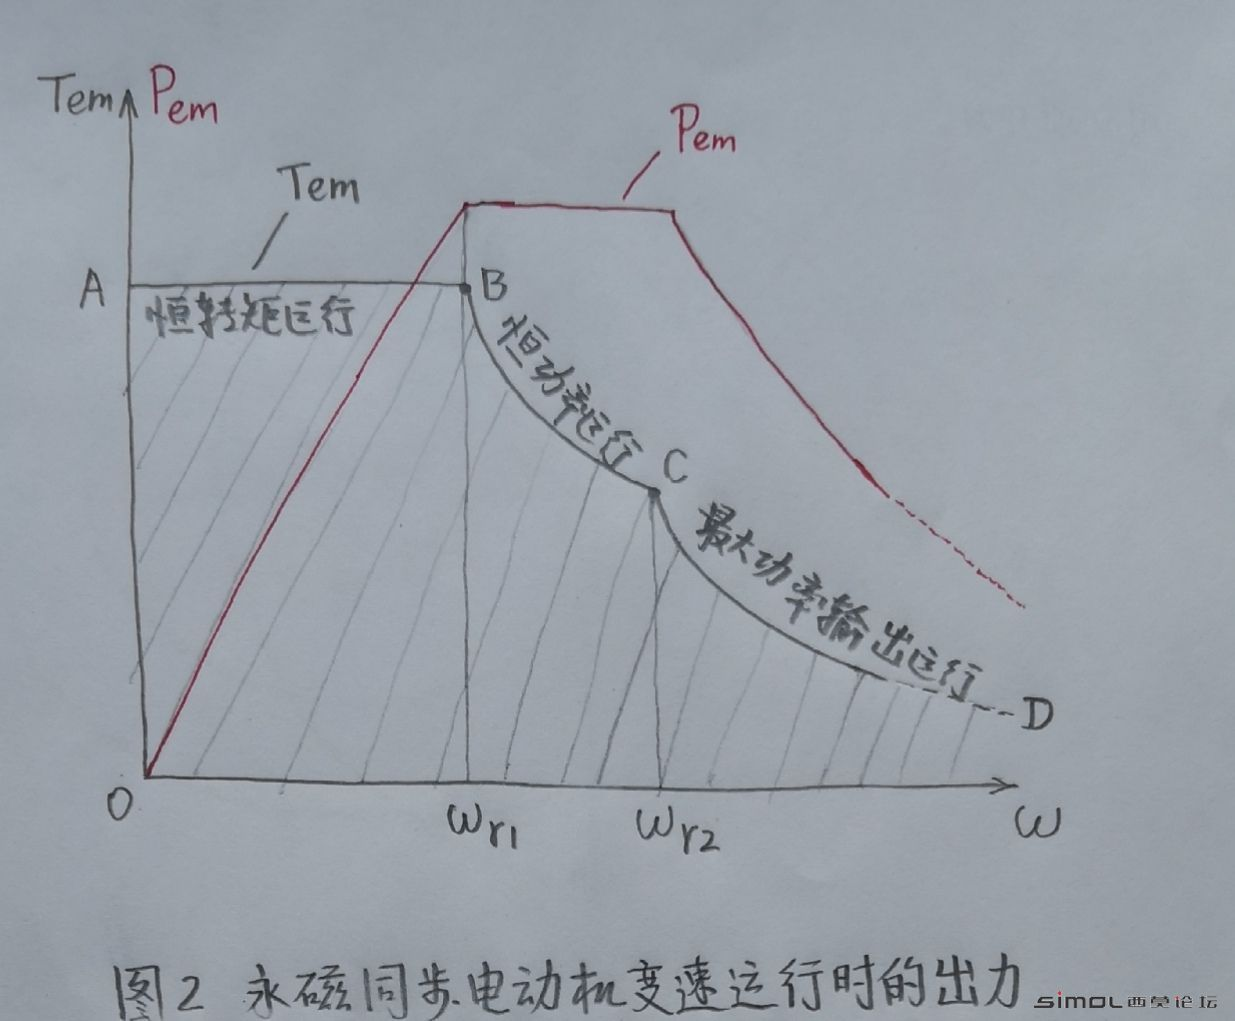 Tem Pem
Pem
Tem
A
B
恒转矩运行
恒功率运行
C
最大功率输出运行
D
O
ωr1
ωr2
ω
图2 永磁同步电动机变速运行时的出力
simol西莫论坛